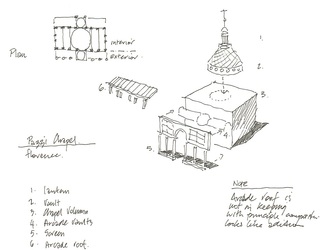 Plan
interior
exterior
1.
2.
3.
6.
4
5.
Pazzi Chapel
florence.
1. lantern
2. Vault
3. Chapel Volume
4. Arcade Vaults
5. Screen
6. Arcade roof.
Note
Arcade roof is
not in keeping
with principle
looks like